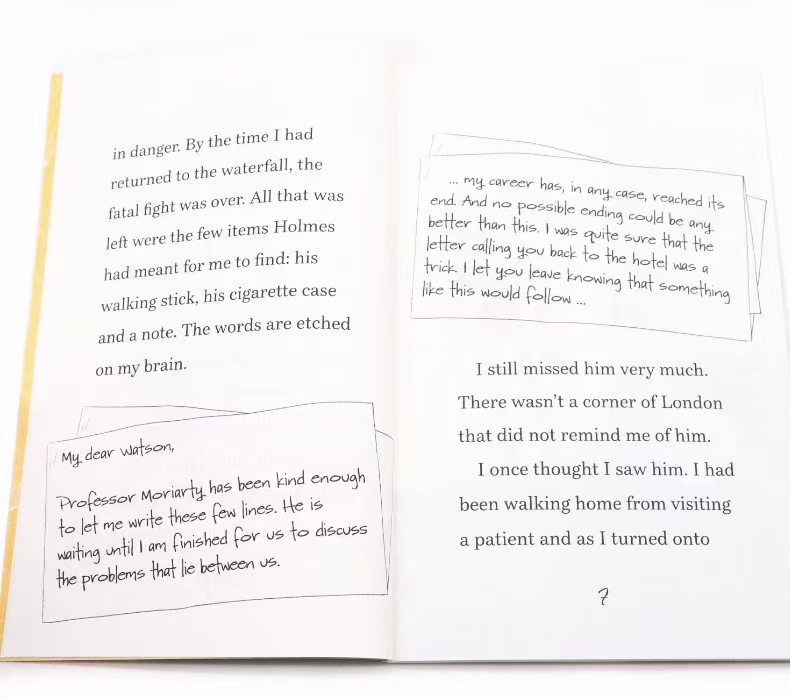 in danger. By the time I had
returned to the waterfall, the
fatal fight was over. All that was
left were the few items Holmes
had meant for me to find: his
walking stick, his cigarette case
and a note. The words are etched
on my brain.
My dear Watson,
Professor Moriarty has been kind enough
to let me write these few lines. He is
waiting until I am finished for us to discuss
the problems that lie between us.
... my career has, in any case, reached its
end. And no possible ending could be any
better than this. I was quite sure that the
letter calling you back to the hotel was a
trick. I let you leave knowing that something
like this would follow ...
I still missed him very much.
There wasn't a corner of London
that did not remind me of him.
I once thought I saw him. I had
been walking home from visiting
a patient and as I turned onto
7